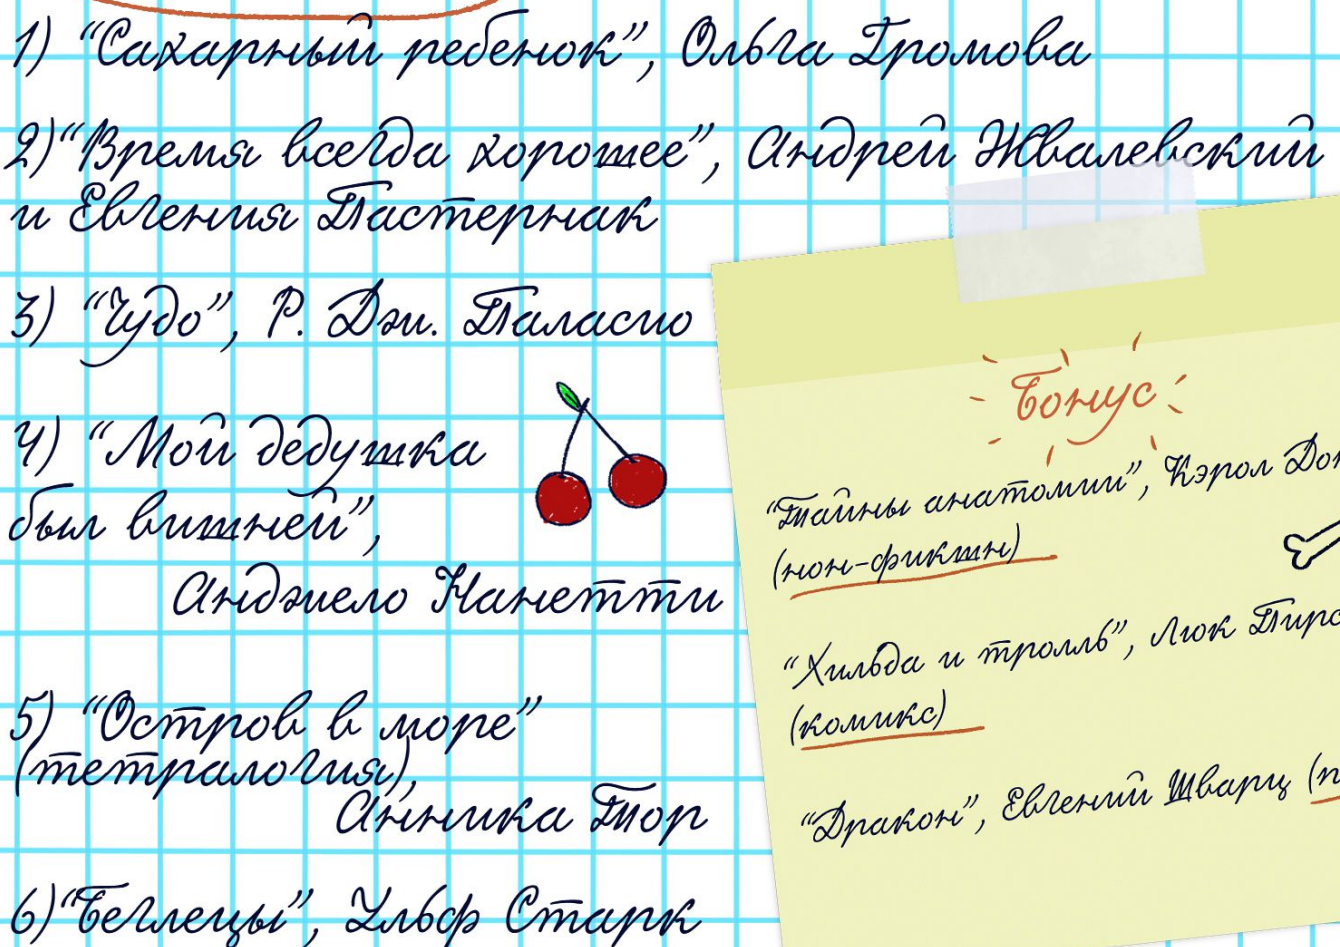 1) “Сахарный ребенок”, Ольга Громова
2) “Время всегда хорошее”, Андрей Жвалевский
и Евгения Пастернак
3) “Чудо”, Р. Дж. Паласио
4) “Мой дедушка
был вишней”,
Анджело Нанетти
5) “Остров в море”
(тетралогия),
Анника Тор
6) “Беглецы”, Ульф Старк
Бонус
“Тайны анатомии”, Кэрол
(нон-фикшн)
“Хильда и тролль”, Люк
(комикс)
“Дракон”, Евгений Шварц